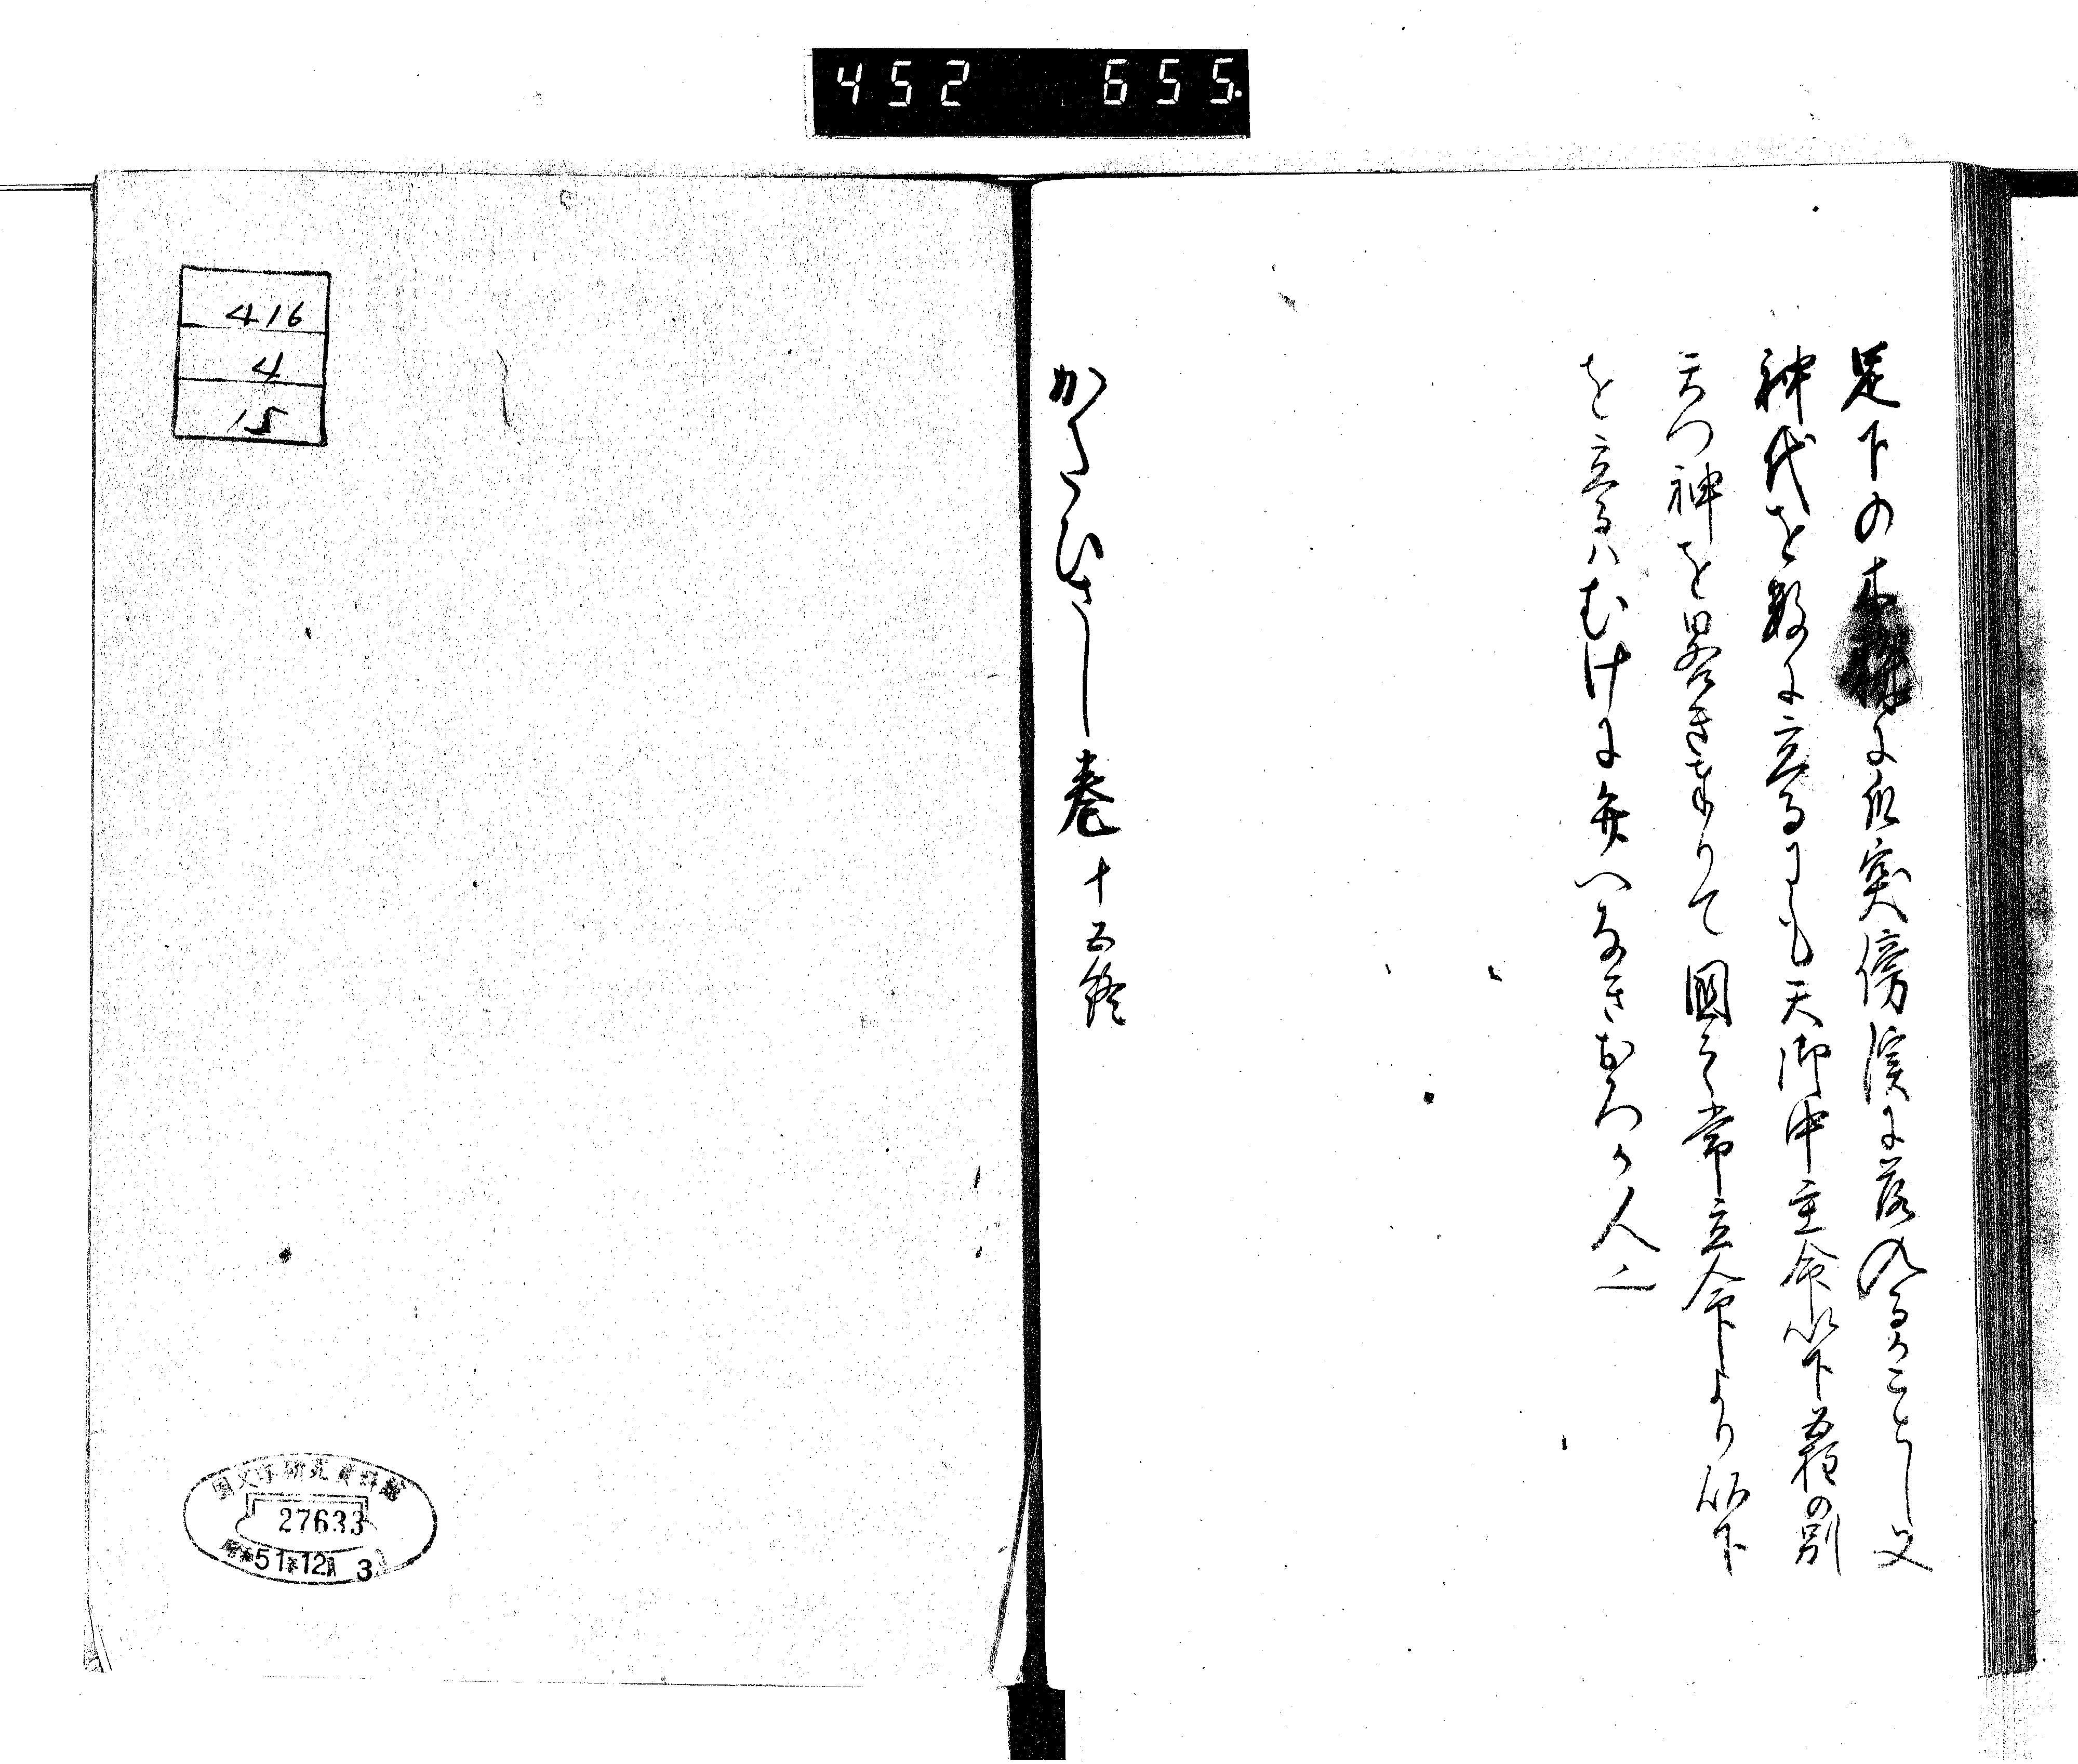 452 655.
足下の木株に仆突傍渓に落入るかことし又
神代を数に立るにも天御中主命以下五種の別
天つ神を畧きまゐりて國之常立命より以下
を立るハむけに弁へなきおろか人ニ
かたひさし巻十五終
416
4
15
国文学研究資料館
27633
昭和51年12月3